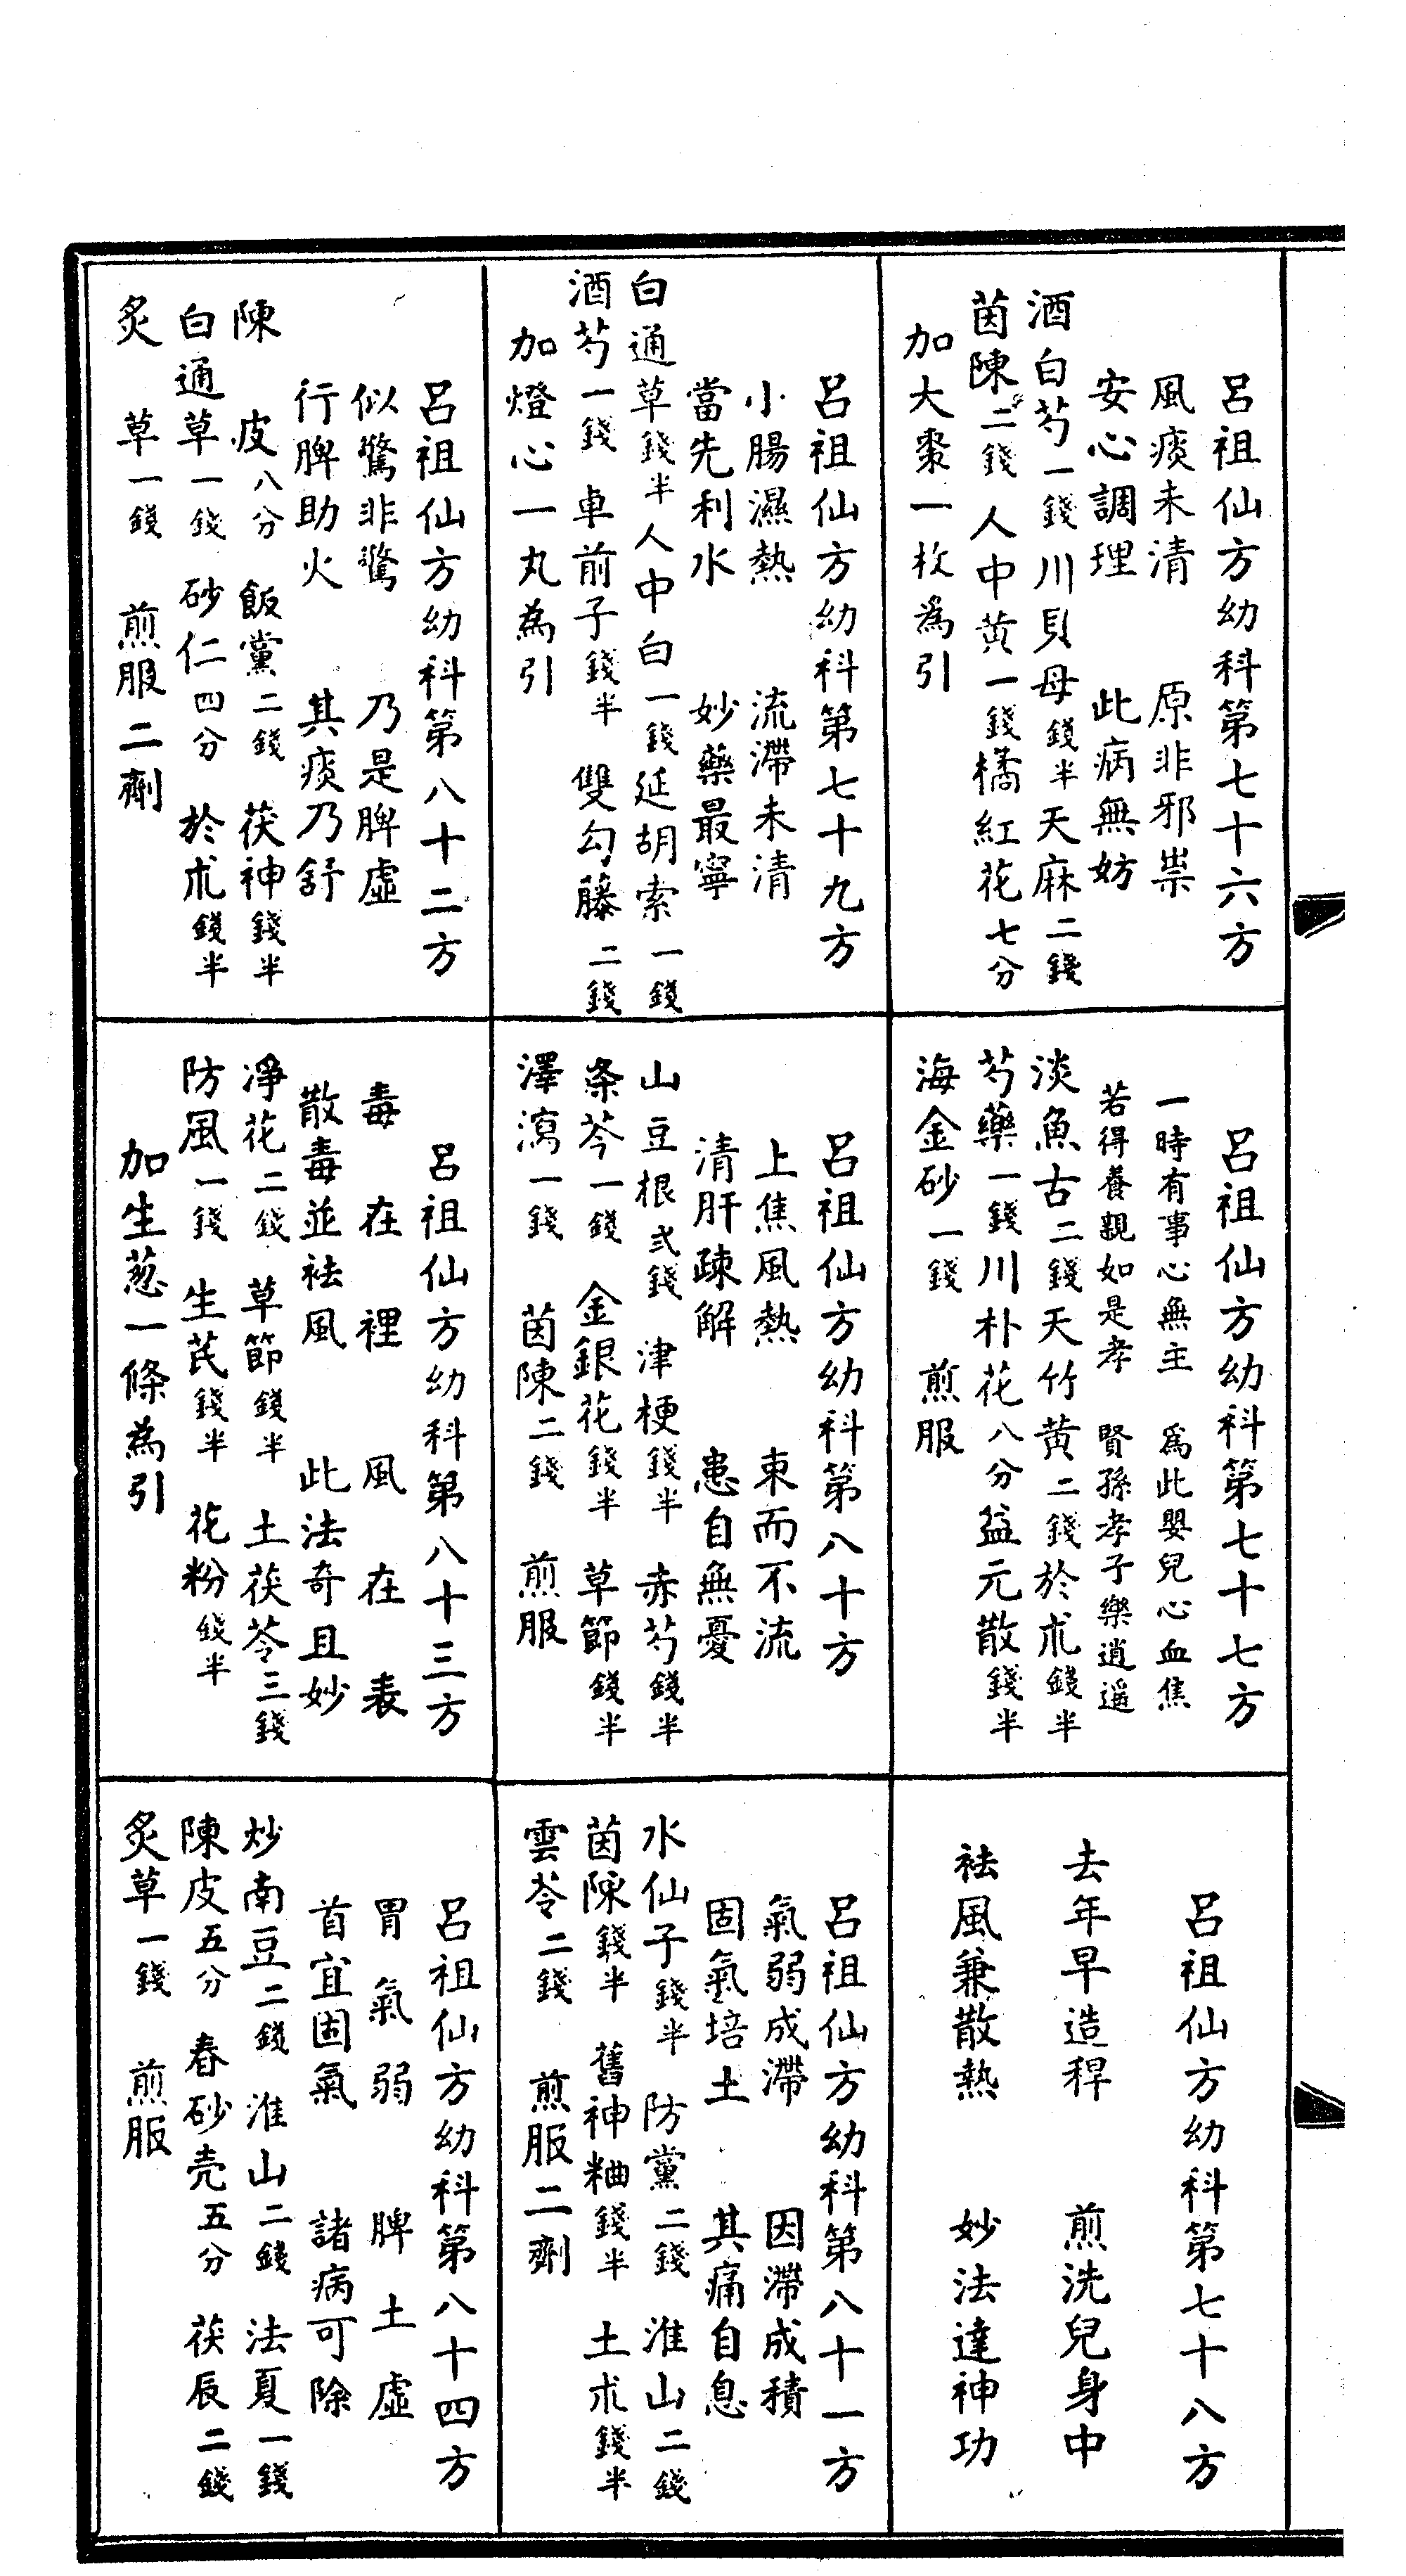 呂祖仙方幼科第七十六方
風痰未清 原非邪祟
安心調理 此病無妨
酒白芍一錢川貝母錢半天麻二錢
茵陳二錢人中黃一錢橘紅花七分
加大棗一枚為引
呂祖仙方幼科第七十七方
一時有事心無主 為此嬰兒心血焦
若得養親如是孝 賢孫孝子樂逍遥
淡魚古二錢天竹黄二錢於朮錢半
芍藥一錢川朴花八分益元散錢半
海金砂一錢 煎服
呂祖仙方幼科第七十八方
去年早造稈 煎洗兒身中
祛風兼散熱 妙法達神功
呂祖仙方幼科第七十九方
小腸濕熱 流滯未清
當先利水 妙藥最寧
白通草錢半人中白一錢延胡索一錢
酒芍一錢 車前子錢半 雙勾藤二錢
加燈心一丸為引
呂祖仙方幼科第八十方
上焦風熱 束而不流
清肝疎解 患自無憂
山豆根弍錢 津梗錢半 赤芍錢半
条芩一錢 金銀花錢半 草節錢半
澤瀉一錢 茵陳二錢 煎服
呂祖仙方幼科第八十一方
氣弱成滯 因滯成積
固氣培土 其痛自息
水仙子錢半 防黨二錢 淮山二錢
茵陳錢半 舊神粬錢半 土朮錢半
雲苓二錢 煎服二劑
呂祖仙方幼科第八十二方
似驚非驚 乃是脾虛
行脾助火 其痰乃舒
陳皮八分 飯黨二錢 茯神錢半
白通草一錢 砂仁四分 於朮錢半
炙草一錢 煎服二劑
呂祖仙方幼科第八十三方
毒在裡 風在表
散毒並祛風 此法奇且妙
淨花二錢 草節錢半 土茯苓三錢
防風一錢 生芪錢半 花粉錢半
加生葱一條為引
呂祖仙方幼科第八十四方
胃氣弱 脾土虛
首宜固氣 諸病可除
炒南豆二錢 淮山二錢 法夏一錢
陳皮五分 春砂壳五分 茯辰二錢
炙草一錢 煎服